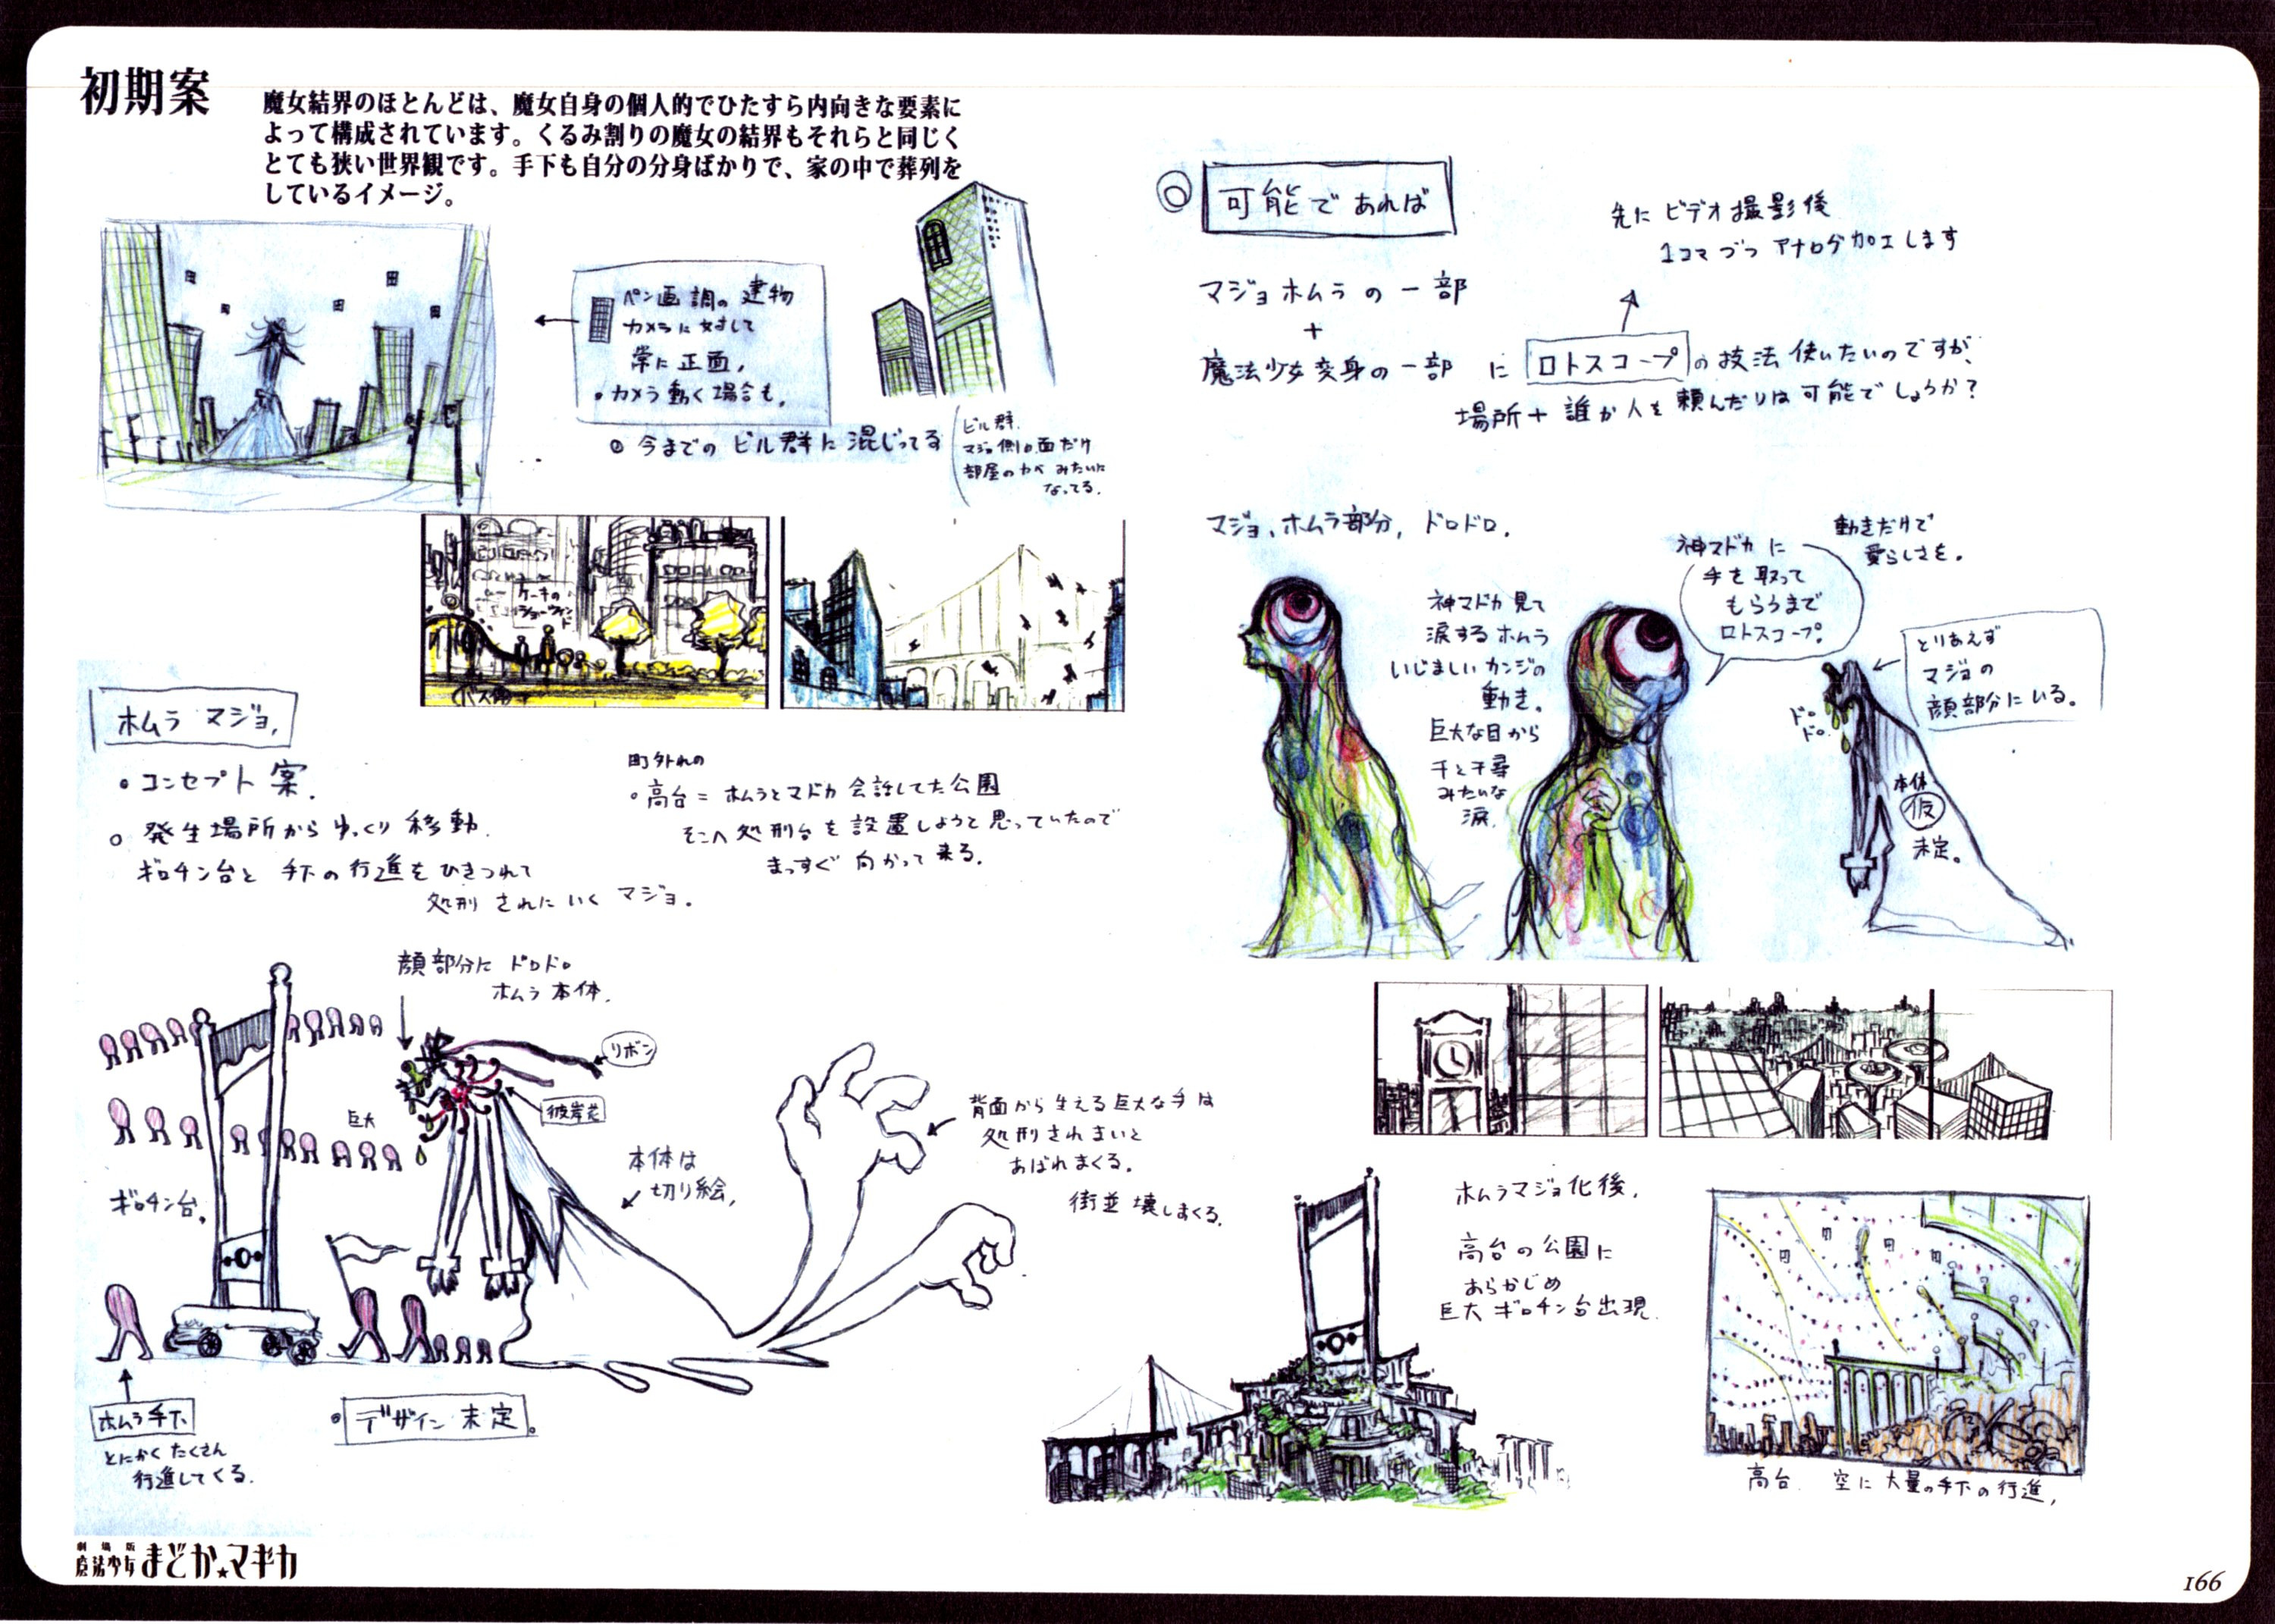 初期案
魔女結界のほとんどは、魔女自身の個人的でひたすら内向きな要素に
よって構成されています。くるみ割りの魔女の結界もそれらと同じく
とても狭い世界観です。手下も自分の分身ばかりで、家の中で葬列を
しているイメージ。
ペン画調の建物
カメラに対して
常に正面,
・カメラ動く場合も,
◎今までのビル群に混じってる
ビル群.
マジョ側の面だけ
部屋のカベみたいに
なってる.
ケーキの
ショーウィンド
ホムラ マジョ,
・コンセプト案.
○発生場所からゆっくり移動.
ギロチン台と手下の行進をひきつれて
処刑されにいくマジョ.
町外れの
・高台=ホムラとマドカ会話してた公園
そこへ処刑台を設置しようと思っていたので
まっすぐ向かって来る.
顔部分にドロドロ
ホムラ本体.
リボン
彼岸花
巨大
ギロチン台.
本体は
切り絵,
背面から生える巨大な手は
処刑されまいと
あばれまくる.
街並壊しまくる.
ホムラ手下
とにかくたくさん
行進してくる.
・デザイン未定.
◎可能であれば
先にビデオ撮影後
1コマづつアナログ加工します
マジョホムラの一部
+
魔法少女変身の一部 に ロトスコープの技法使いたいのですが、
場所+誰か人を頼んだりは可能でしょうか?
マジョ,ホムラ部分,ドロドロ.
神マドカ見て
涙するホムラ
いじましいカンジの
動き.
巨大な目から
千と千尋
みたいな
涙.
神マドカに
手を取って
もらうまで
ロトスコープ.
動きだけで
愛らしさを.
とりあえず
マジョの
顔部分にいる.
ドロ
ドロ
本体
仮
未定.
ホムラマジョ化後,
高台の公園に
あらかじめ
巨大ギロチン台出現.
高台. 空に大量の手下の行進,
劇場版
魔法少女まどか★マギカ
166